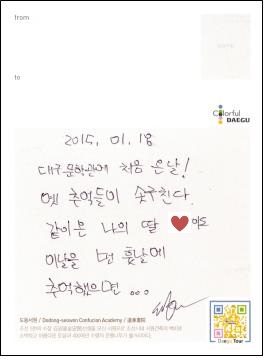 from
to
Colorful
DAEGU
2015. 01. 18
대구문학관에 처음 온날!
옛 추억들이 솟구친다.
같이온 나의 딸 ♥이도
이날을 먼 훗날에
추억했으면 ...
도동서원 / Dodong-seowon Confucian Academy / 道東書院
Daegu Tour